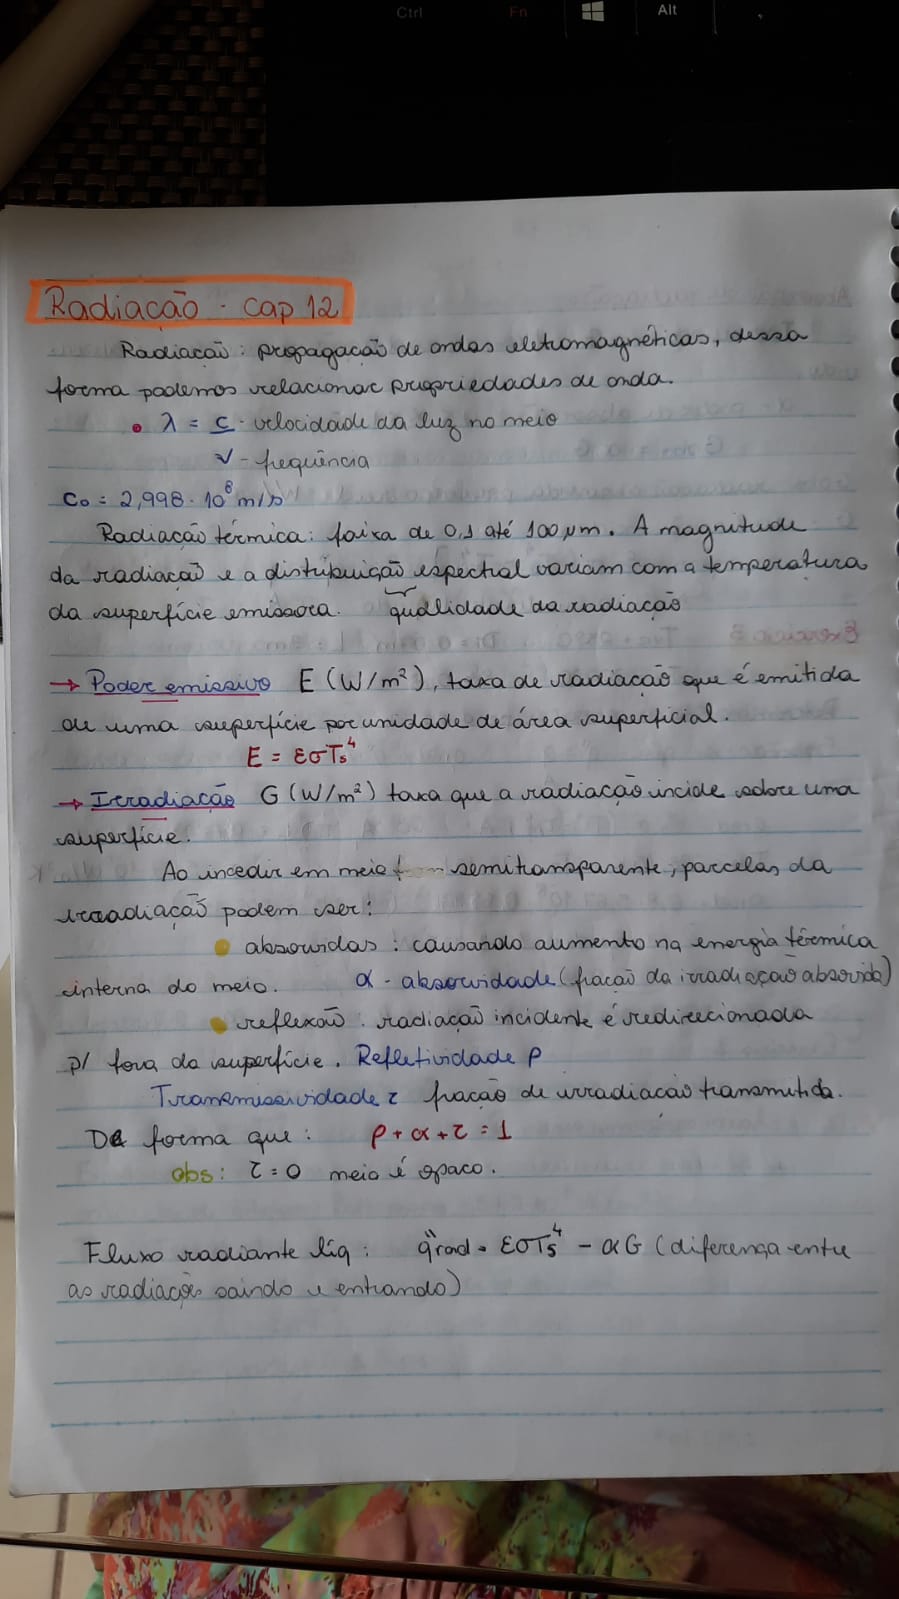 Ctrl Fn Alt
Radiação - cap 12
Radiação: propagação de ondas eletromagnéticas, dessa
forma podemos relacionar propriedades de onda.
• λ = c - velocidade da luz no meio
ν - frequência
C₀ = 2,998 · 10⁸ m/s
Radiação térmica: faixa de 0,1 até 100 μm. A magnitude
da radiação e a distribuição espectral variam com a temperatura
da superfície emissora. qualidade da radiação
→ Poder emissivo E (W/m²), taxa de radiação que é emitida
de uma superfície por unidade de área superficial.
E = εσTs⁴
→ Irradiação G (W/m²) taxa que a radiação incide sobre uma
superfície.
Ao incedir em meio semitransparente, parcelas da
irradiação podem ser:
• absorvidas: causando aumento na energia térmica
interna do meio. α - absorvidade (fração da irradiação absorvida)
• reflexão: radiação incidente é redirecionada
p/ fora da superfície. Refletividade ρ
Transmissividade τ fração de irradiação transmitida.
De forma que: ρ + α + τ = 1
obs: τ = 0 meio é opaco.
Fluxo radiante líq: q̈rad = εσTs⁴ - αG (diferença entre
as radiações saindo e entrando)